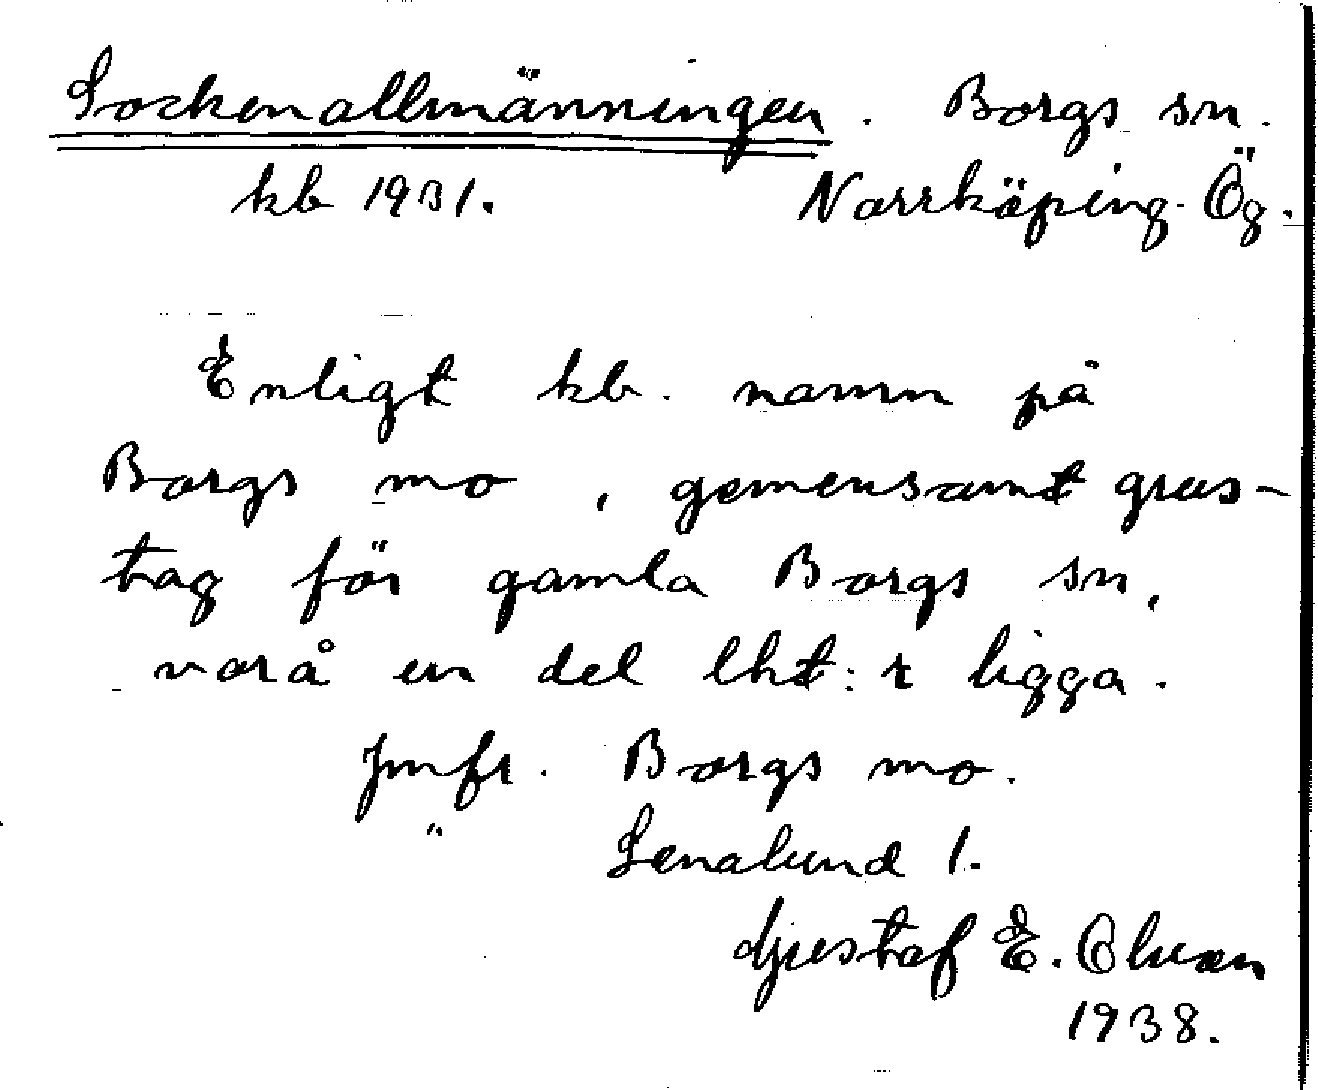 Sockenallmänningen. Borgs sn.
kb 1931. Norrköping. Ög.
Enligt kb. namn på
Borgs mo, gemensamt grus-
tag för gamla Borgs sn,
varå en del lht:r ligga.
Jmfr. Borgs mo.
" Lenalund 1.
Gustaf E.
1938.